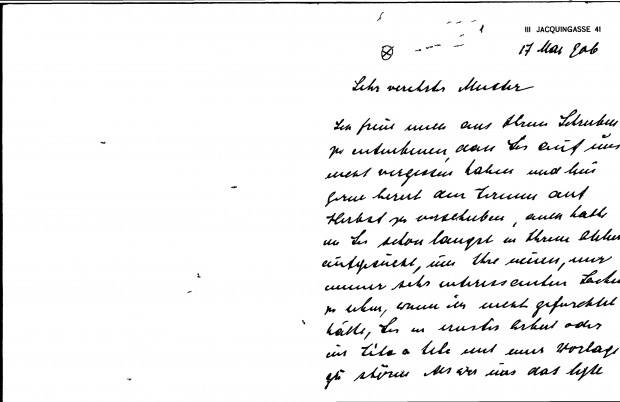 III JACQUINGASSE 41
17 Mai 906
Sehr verehrter Meister
Ich freue mich aus Ihrem Schreiben
zu entnehmen, dass Sie auf uns
nicht vergessen haben und bin
gerne bereit den Termin auf
Herbst zu verschieben, auch hätte
ich Sie schon längst in Ihrem Atelier
aufgesucht, um Ihre neuen, mir
immer sehr interessanten Sachen
zu sehen, wenn ich nicht gefürchtet
hätte, Sie in ernster Arbeit oder
im Tête a tete mit einer Vorlage
zu stören Als wir uns das letzte